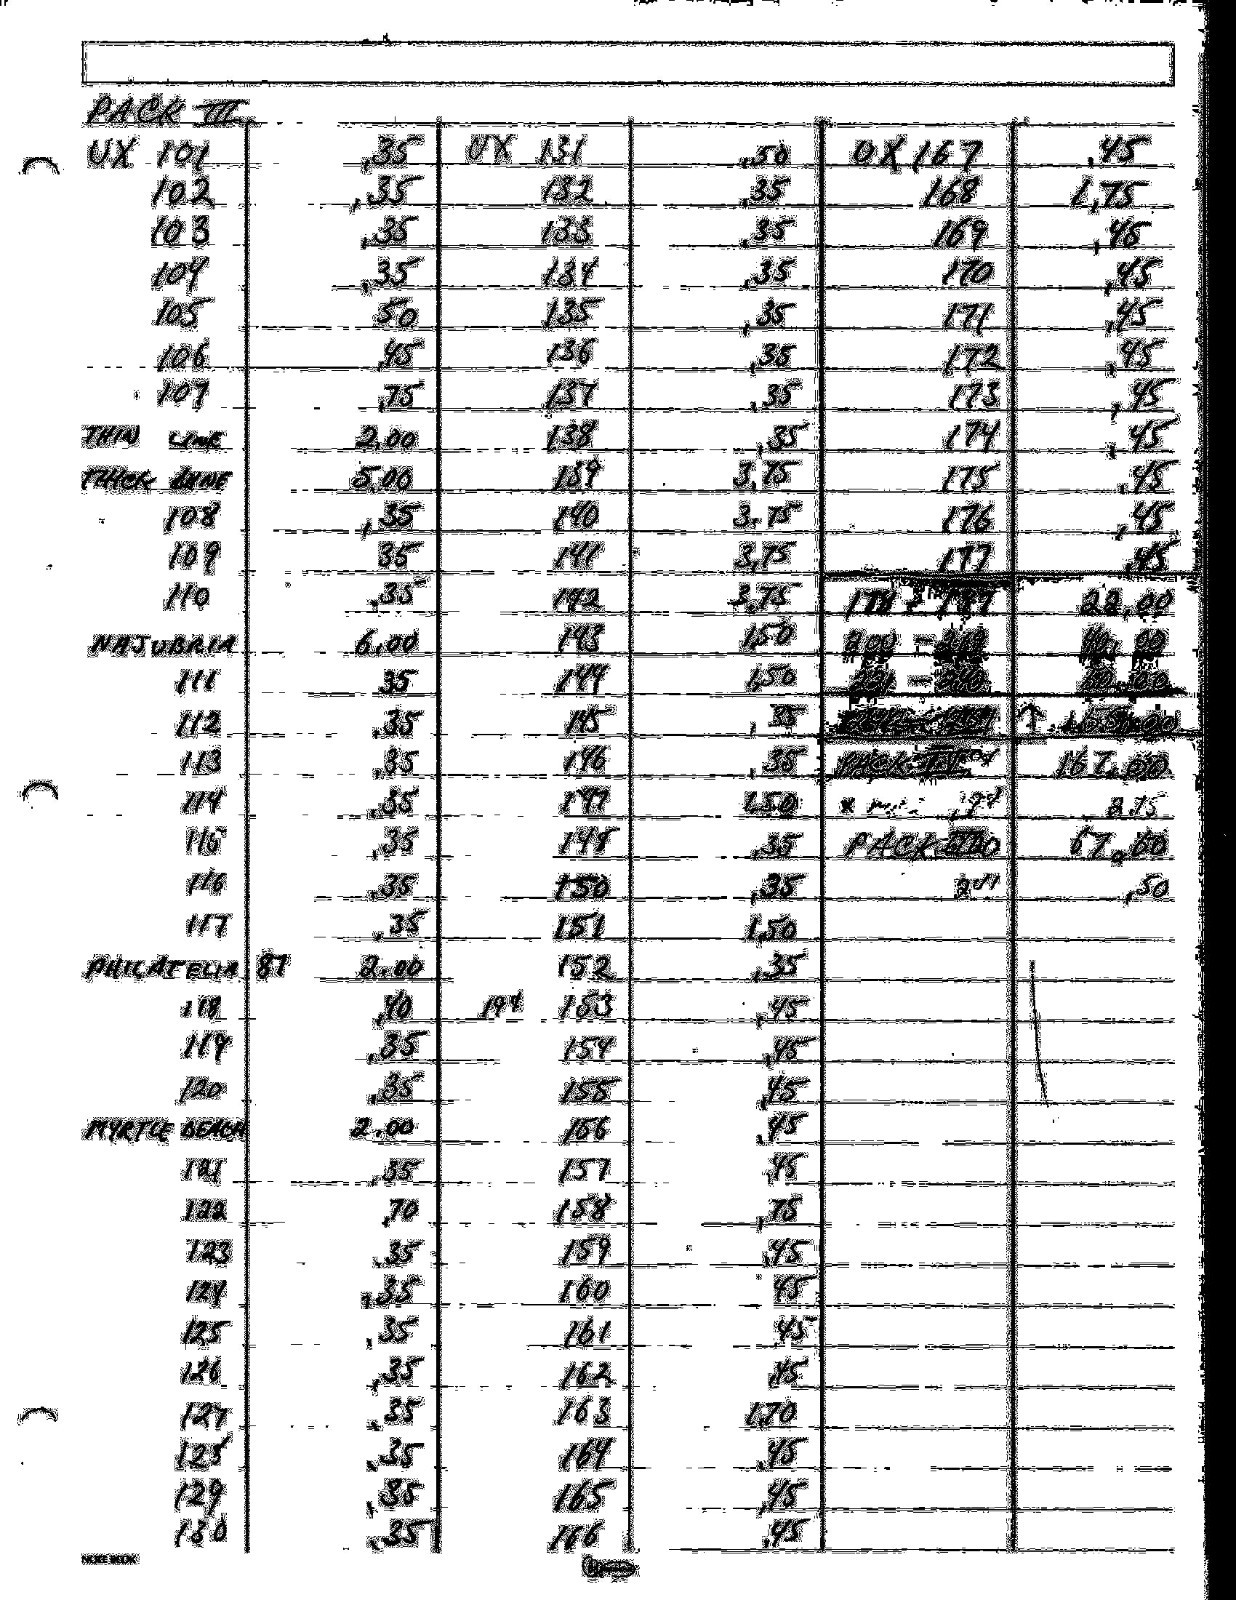 PACK III
UX 101 ,35 UX 131 ,50 UX 167 ,45
102 ,35 132 ,35 168 1,75
103 ,35 133 ,35 169 ,45
104 ,35 134 ,35 170 ,45
105 50 135 ,35 171 ,45
106 ,45 136 ,35 172 ,45
107 ,75 137 ,35 173 ,45
THIN LINE 2.00 138 ,35 174 ,45
THICK LINE 5.00 139 3,75 175 ,45
108 ,35 140 3.75 176 ,45
109 35 141 3,75 177 ,45
110 ,35 142 3,75 22,00
NAJUBRIA 6.00 143 1,50 200 -
111 35 144 1,50
112 ,35 145 ,35
113 ,35 146 ,35 PACK 167.00
114 ,35 147 1.50 2.75
115 ,35 148 ,35 PACK 67.60
116 ,35 150 ,35 ,50
117 ,35 151 1,50
PHILATELIA 87 2.00 152 ,35
118 ,40 194 153 ,45
119 ,35 154 ,45
120 ,35 155 ,45
MYRTLE BEACH 2.00 156 ,45
121 ,35 157 ,45
122 ,70 158 ,75
123 ,35 159 ,45
124 ,35 160 45
125 ,35 161 45
126 ,35 162 ,45
127 ,35 163 1,70
128 ,35 164 ,45
129 ,35 165 ,45
130 ,35 166 ,45
NOTE BOOK